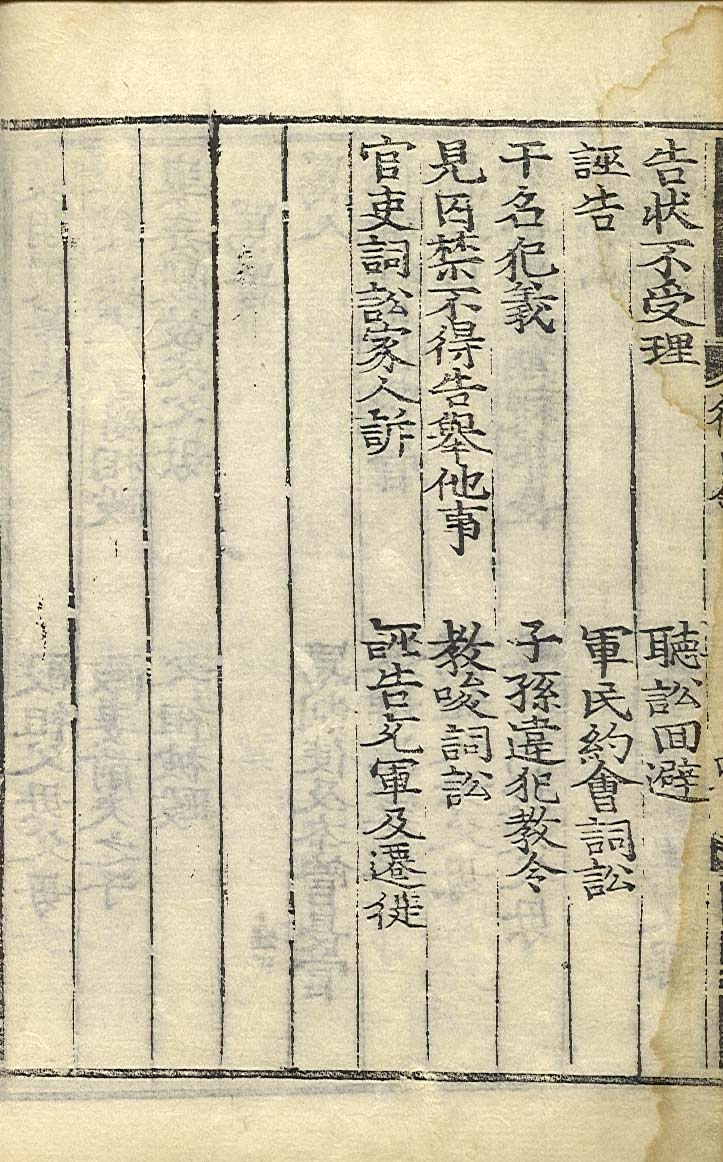 告狀不受理　聽訟回避
誣告　軍民約會詞訟
干名犯義　子孫違犯教令
見囚禁不得告舉他事　教唆詞訟
官吏詞訟家人訴　誣告充軍及遷徙